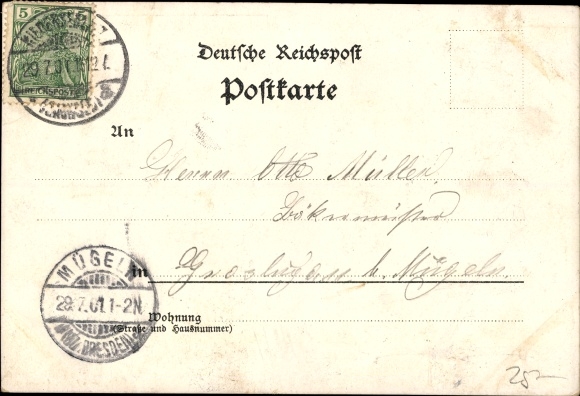 5
REICHSPOST
29.7.01.
Deutsche Reichspost
Postkarte
An
Herrn Otto Müller,
Bäckermeister
in Grosslugass b. Mügeln.
MÜGELN
29.7.01.1-2N
(BZ. DRESDEN)
Wohnung
(Straße und Hausnummer)
25-